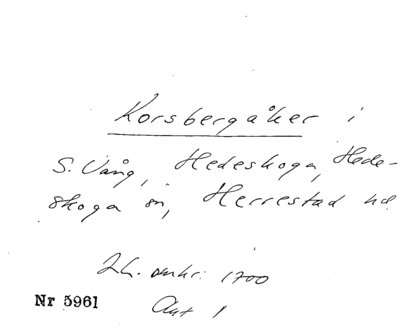 Korsbergåker i
S. Vång, Hedeskoga, Hede-
skoga sn, Herrestad hd.
Lh. omkr. 1700
Nr 5961 Akt 1